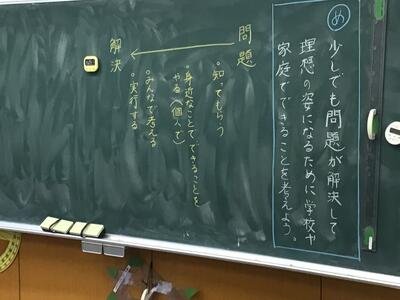 め
少しでも問題が解決して
理想の姿になるために学校や
家庭でできることを考えよう。
問題
解決
・知ってもらう
・身近なことでできることを
やる（個人で）
・みんなで考える
・実行する